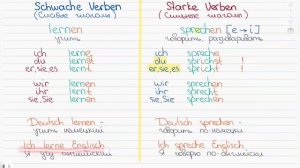 Schwache Verben
(слабые глаголы)
lernen
учить
ich lerne
du lernst
er, sie, es lernt
wir lernen
ihr lernt
sie, Sie lernen
Deutsch lernen -
учить немецкий
Ich lerne Englisch
Я учу английский
Starke Verben
(сильные глаголы)
sprechen [e → i]
говорить, разговаривать
ich spreche
du sprichst !
er, sie, es spricht !
wir sprechen
ihr sprecht
sie, Sie sprechen
Deutsch sprechen -
говорить по-немецки
Ich spreche Englisch
Я говорю по-английски